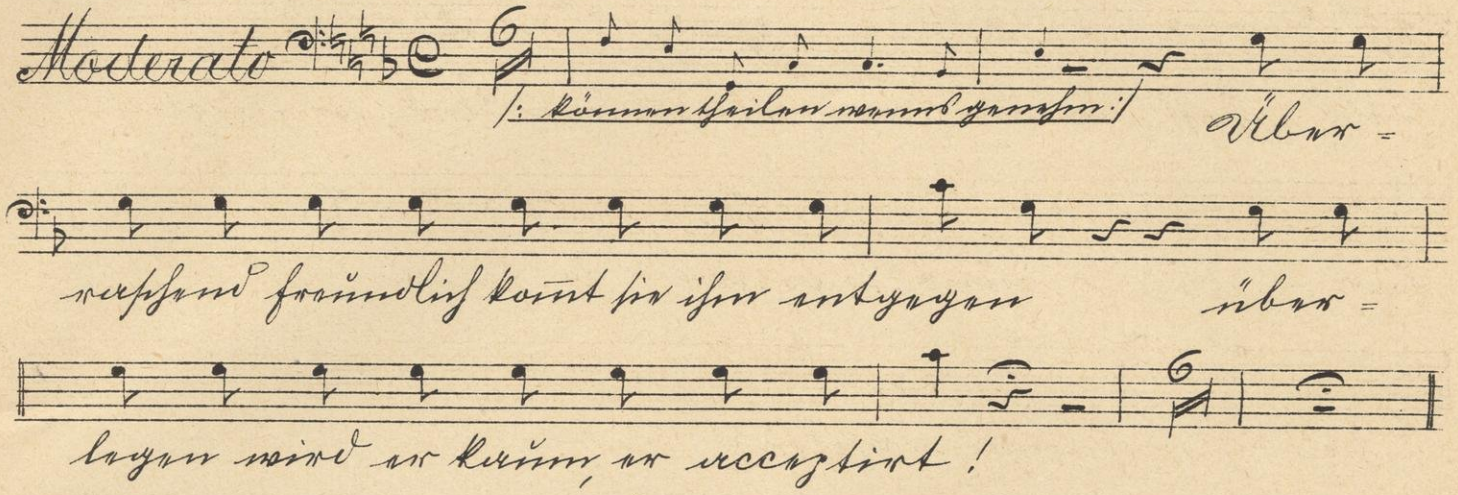 Moderato 6
/: können theilen wenns genehm :/
Über =
raschend freundlich kom̄t sie ihm entgegen über =
legen wird er kaum, er acceptirt !
6